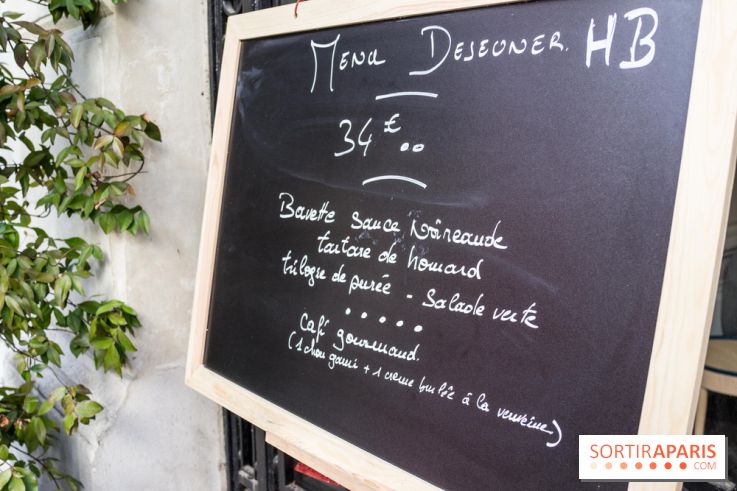 Menu Dejeuner. HB
34 €
Bavette sauce Noireaude
tartare de homard
trilogie de purée - Salade verte
Café gourmand.
(1 chou garni + 1 creme brulée à la verveine)
SORTIRAPARIS
.COM